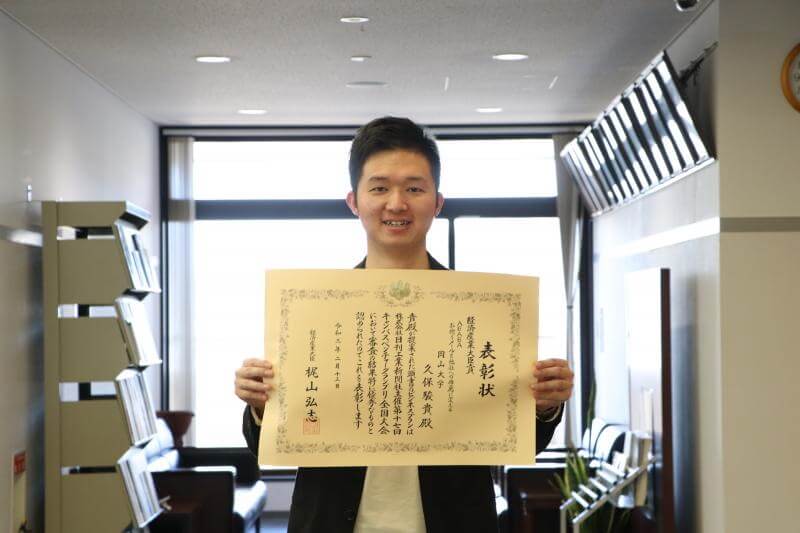 表彰状
経済産業大臣賞
岡山大学
久保駿貴殿
貴殿が提案された頭書のビジネスプランは
株式会社日刊工業新聞社主催第十七回
キャンパスベンチャーグランプリ全国大会
において審査の結果特に優秀なものと
認められたのでこれを表彰します
令和三年二月十五日
経済産業大臣
梶山弘志